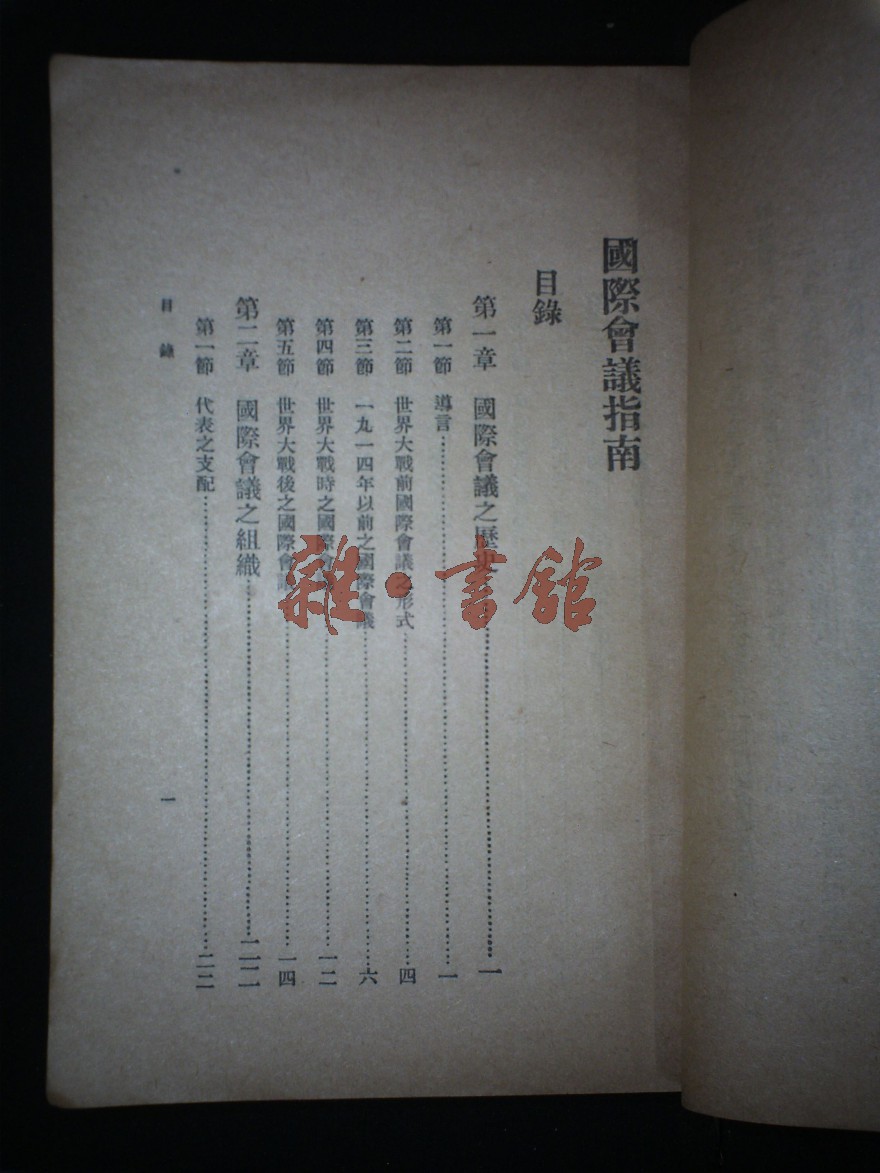 國際會議指南
目錄
第一章 國際會議之歷史…一
第一節 導言…一
第二節 世界大戰前國際會議之形式…四
第三節 一九一四年以前之國際會議…六
第四節 世界大戰時之國際會…一二
第五節 世界大戰後之國際會議…一四
第二章 國際會議之組織…二二
第一節 代表之支配…二二
目錄
一
雜·書館